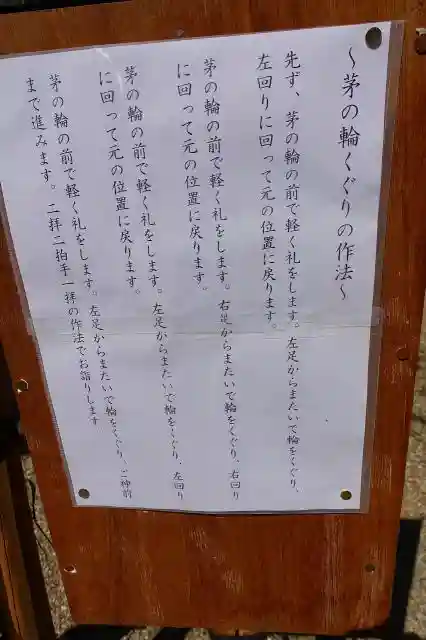 ～茅の輪くぐりの作法～
先ず、茅の輪の前で軽く礼をします。左足からまたいで輪をくぐり、
左回りに回って元の位置に戻ります。
茅の輪の前で軽く礼をします。右足からまたいで輪をくぐり、右回り
に回って元の位置に戻ります。
茅の輪の前で軽く礼をします。左足からまたいで輪をくぐり、左回り
に回って元の位置に戻ります。
茅の輪の前で軽く礼をします。左足からまたいで輪をくぐり、ご神前
まで進みます。二拝二拍手一拝の作法でお詣りします